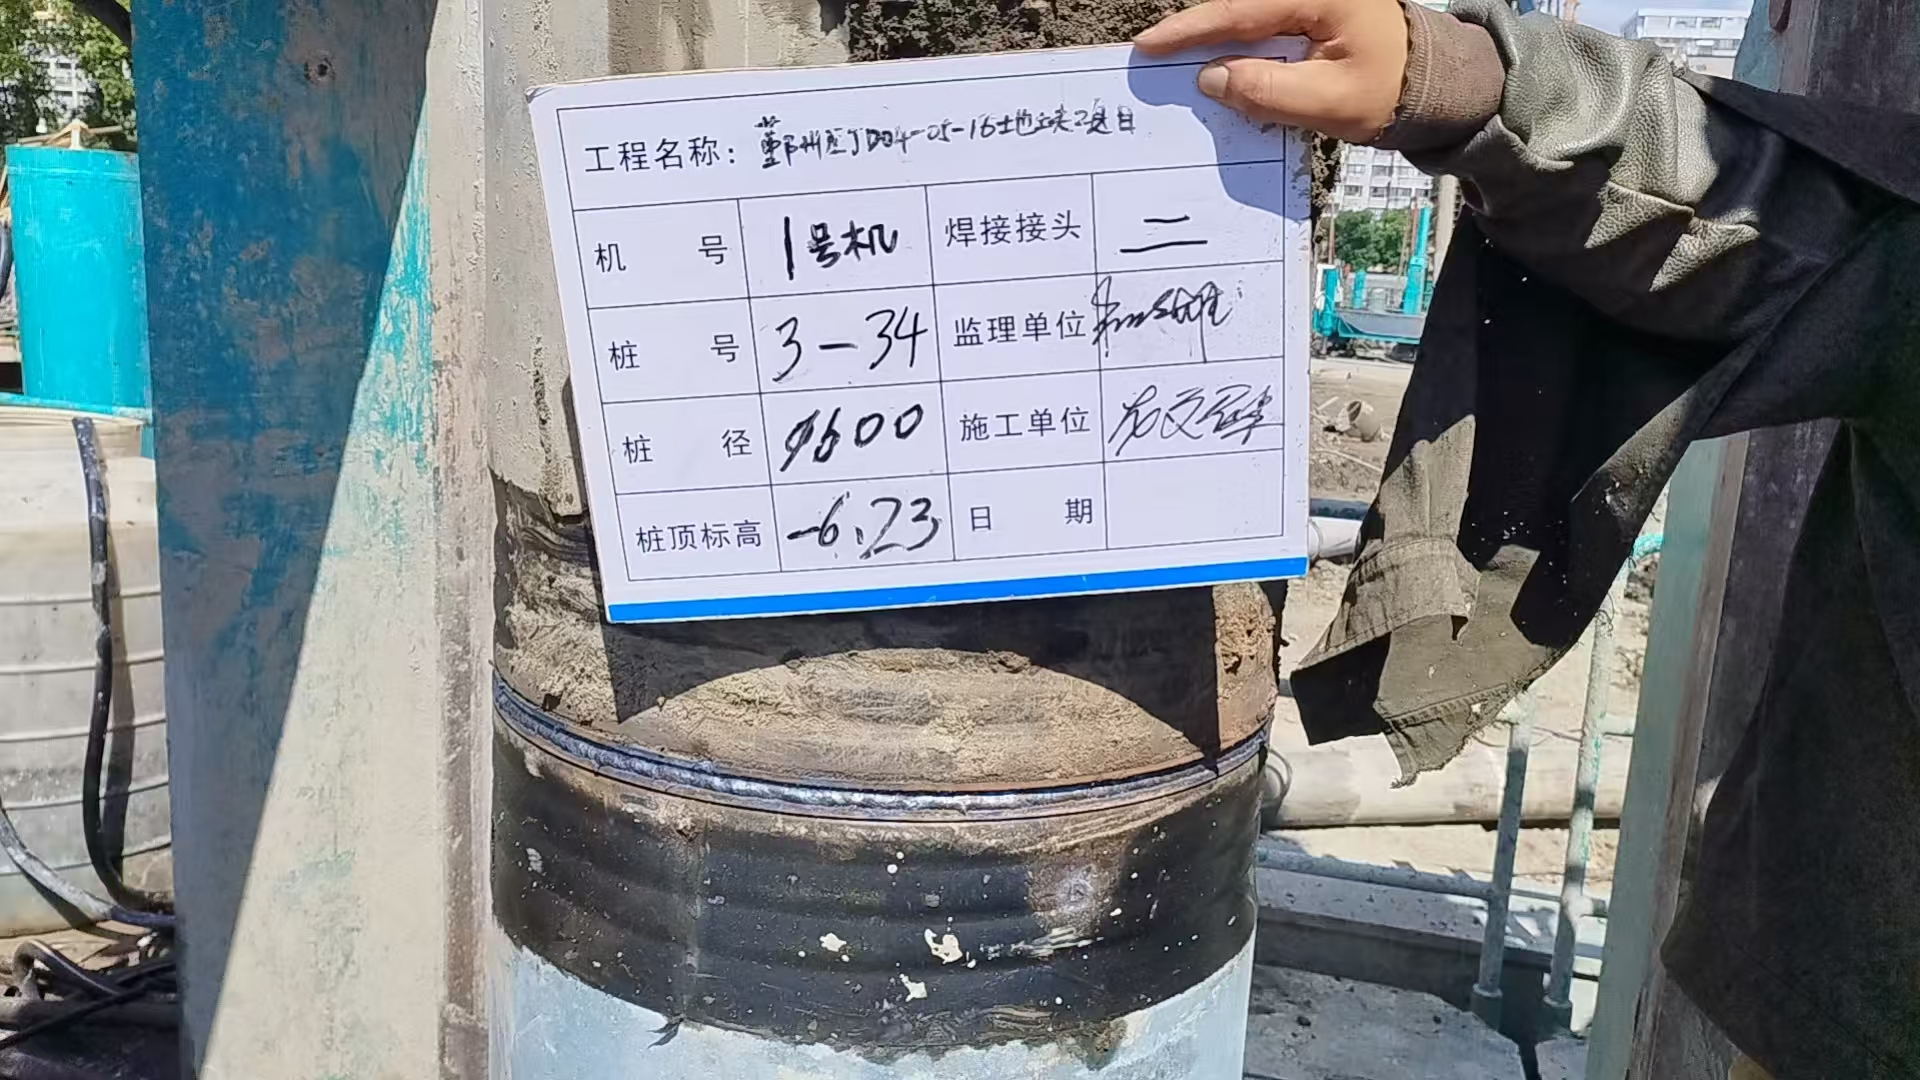 工程名称：鄞州区JD04-05-16#地块项目
机 号 1号机 焊接接头 二
桩 号 3-34 监理单位
桩 径 φ600 施工单位
桩顶标高 -6.23 日 期